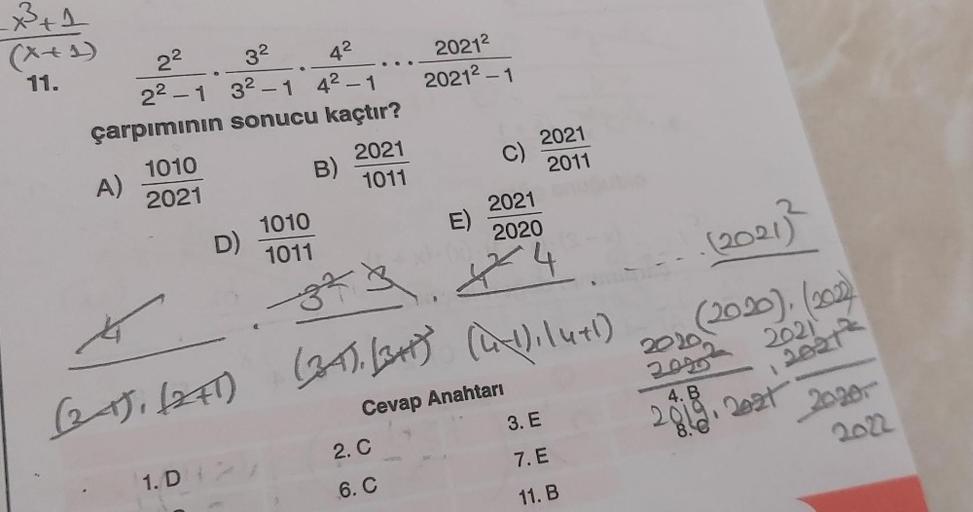 x³+1
(x+1)
11. 2²/(2² − 1) · 3²/(3² − 1) · 4²/(4² − 1) ··· 2021²/(2021² − 1)
çarpımının sonucu kaçtır?
A) 1010/2021 B) 2021/1011 C) 2021/2011
D) 1010/1011 E) 2021/2020
4 · 3² 3 · 4² 4 · ---- (2021)²
(2-1).(2+1) (3-1).(3+1) (4-1).(4+1) (2020).(2022)
2020 2021
2020² · 2021²
2019. 2021 2020.
2022
Cevap Anahtarı
1. D 2. C 3. E 4. B
6. C 7. E
11. B